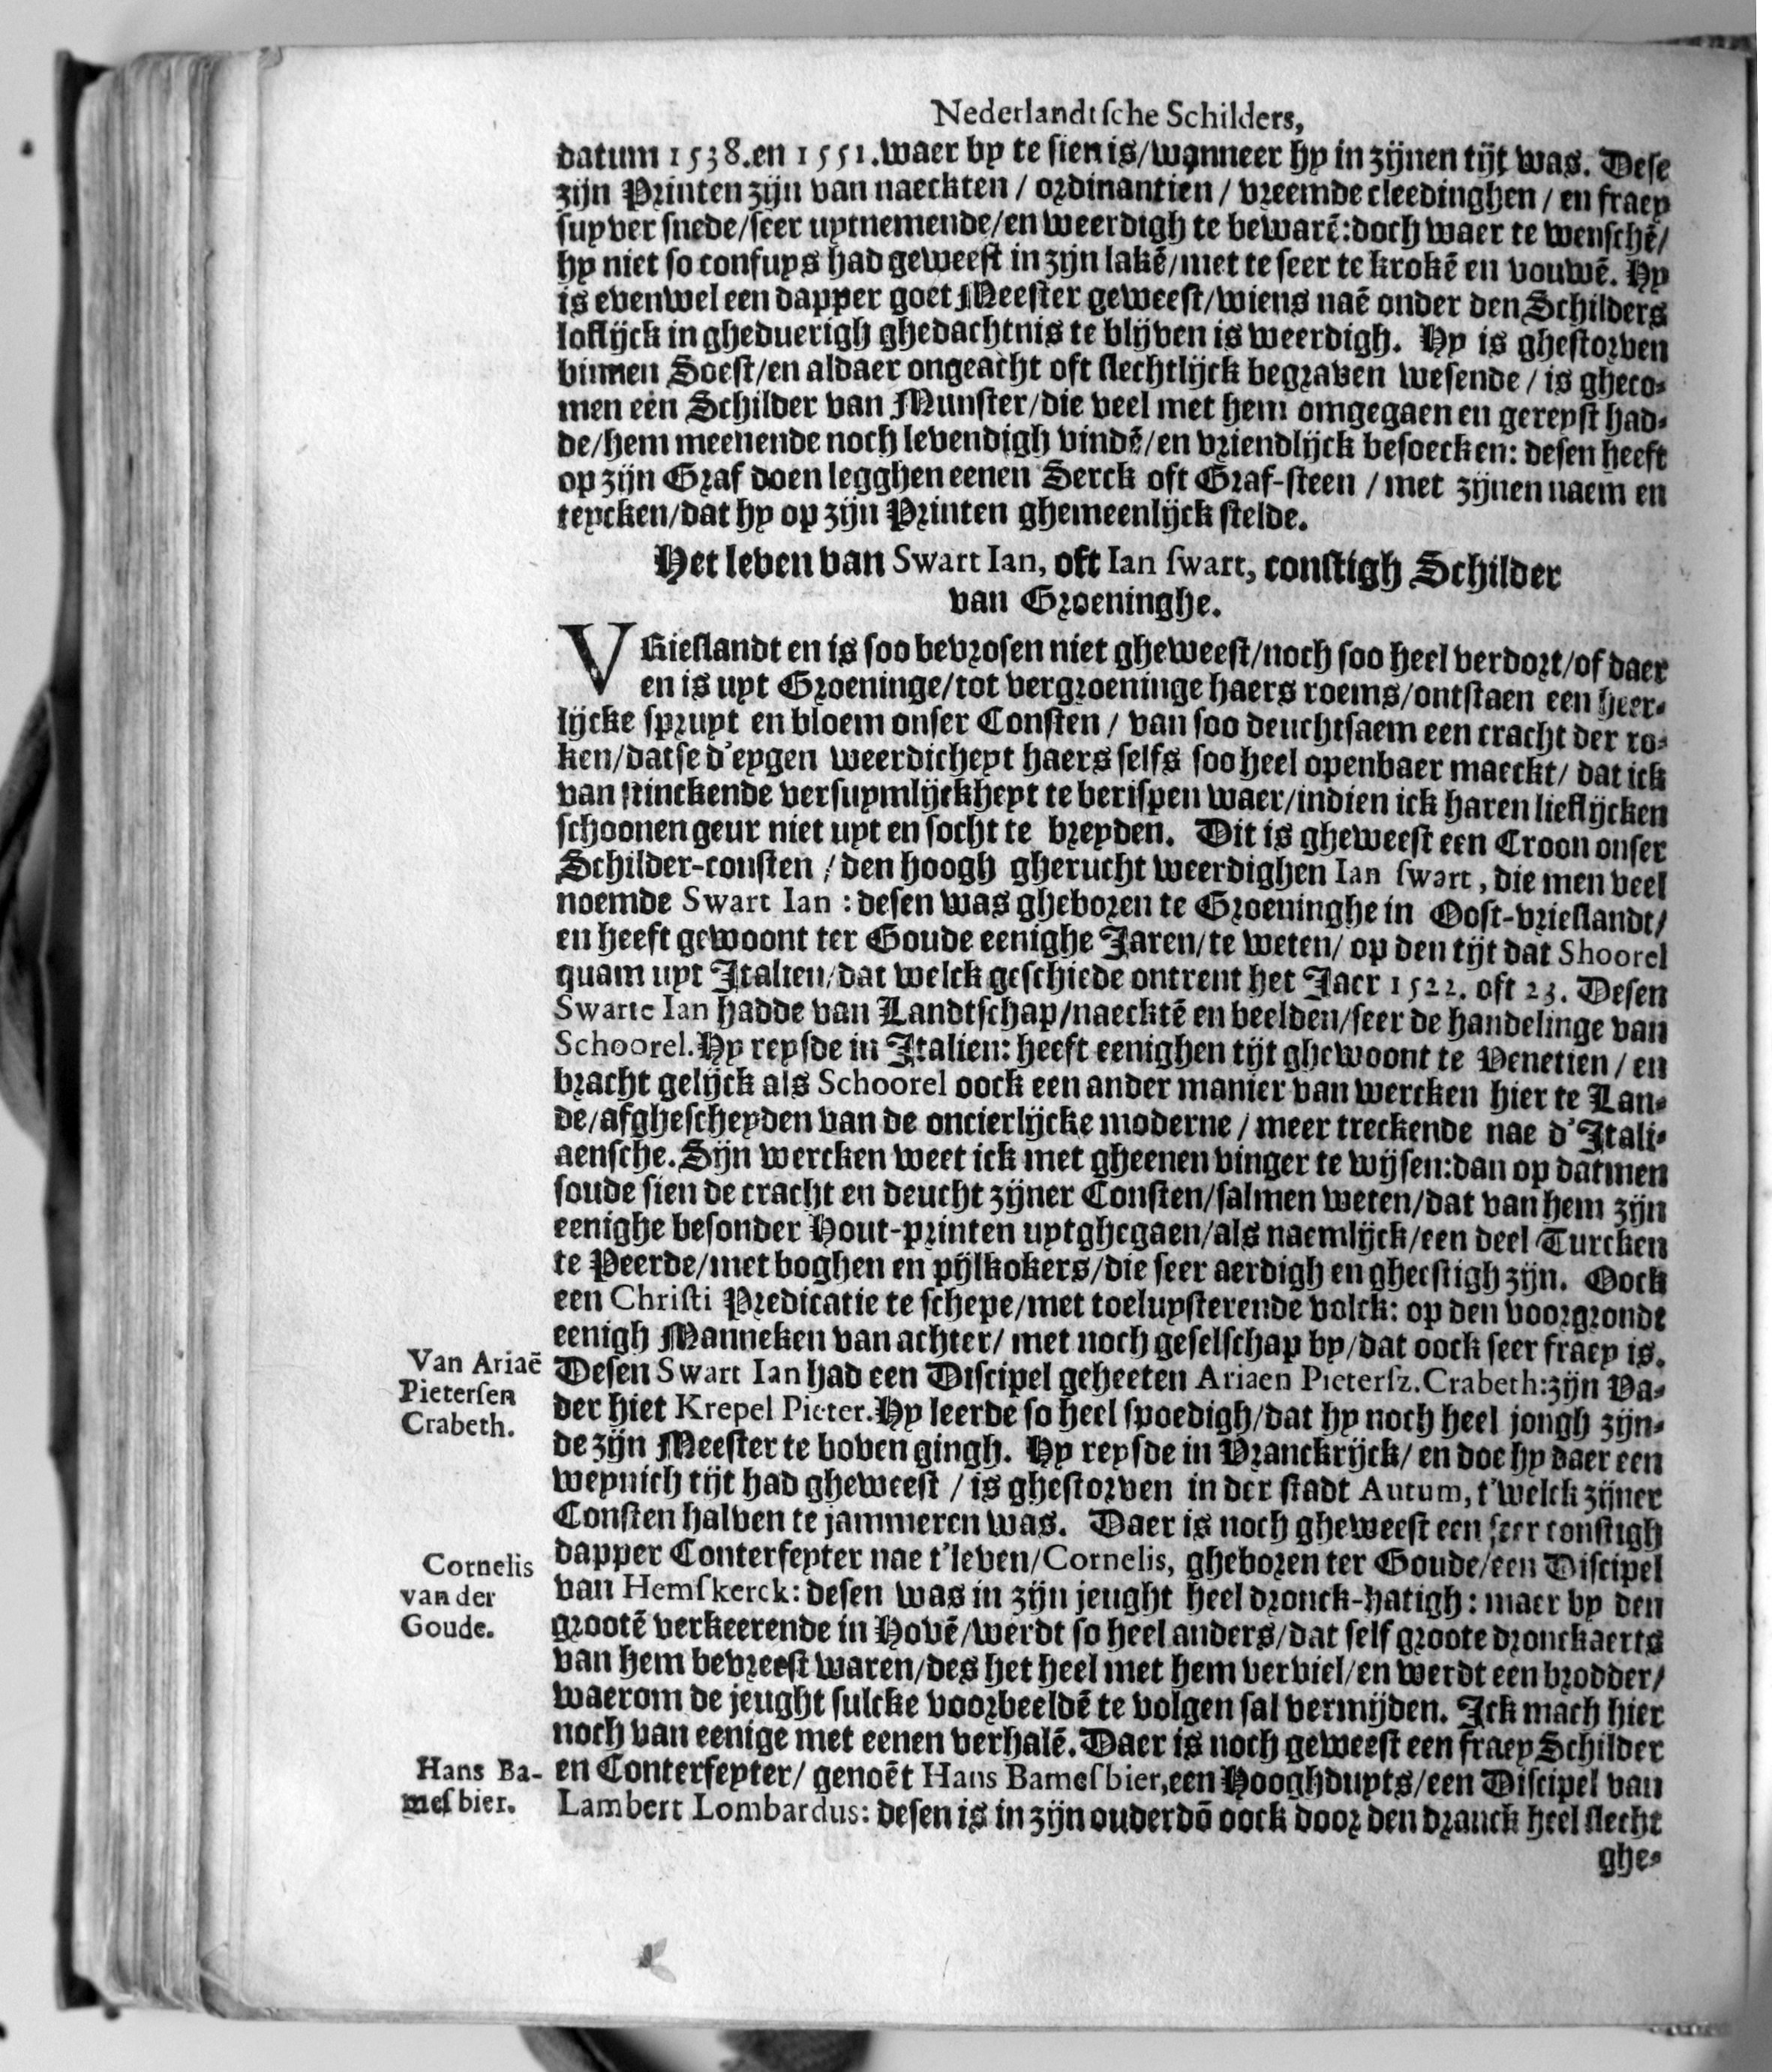 Nederlandtsche Schilders,
datum 1538.en 1551.waer by te sien is/wanneer hy in zijnen tijt was. Dese
zijn Printen zijn van naeckten / ordinantien / vreemde cleedinghen / en fraey
suyver snede/seer uytnemende/en weerdigh te bewarẽ:doch waer te wenschẽ/
hy niet so confuys had geweest in zijn lakẽ/met te seer te krokẽ en vouwẽ. Hy
is evenwel een dapper goet Meester geweest/wiens naẽ onder den Schilders
loflijck in gheduerigh ghedachtnis te blijven is weerdigh. Hy is ghestorven
binnen Soest/en aldaer ongeacht oft slechtlijck begraven wesende / is gheco-
men een Schilder van Munster/die veel met hem omgegaen en gereyst had-
de/hem meenende noch levendigh vindẽ/en vriendlijck besoecken: desen heeft
op zijn Graf doen legghen eenen Serck oft Graf-steen / met zijnen naem en
teycken/dat hy op zijn Printen ghemeenlijck stelde.
Het leven van Swart Ian, oft Ian swart, constigh Schilder
van Groeninghe.
VRieslandt en is soo bevrosen niet gheweest/noch soo heel verdort/of daer
en is uyt Groeninge/tot vergroeninge haers roems/ontstaen een heer-
lijcke spruyt en bloem onser Consten / van soo deuchtsaem een cracht der ro-
ken/datse d'eygen weerdicheyt haers selfs soo heel openbaer maeckt/ dat ick
van stinckende versuymlijckheyt te berispen waer/indien ick haren lieflijcken
schoonen geur niet uyt en socht te breyden. Dit is gheweest een Croon onser
Schilder-consten / den hoogh gherucht weerdighen Ian swart, die men veel
noemde Swart Ian : desen was gheboren te Groeninghe in Oost-vrieslandt/
en heeft gewoont ter Goude eenighe Jaren/te weten/ op den tijt dat Shoorel
quam uyt Italien/dat welck geschiede ontrent het Jaer 1522. oft 23. Desen
Swarte Ian hadde van Landtschap/naecktẽ en beelden/seer de handelinge van
Schoorel.Hy reysde in Italien: heeft eenighen tijt ghewoont te Venetien / en
bracht gelijck als Schoorel oock een ander manier van wercken hier te Lan-
de/afghescheyden van de oncierlijcke moderne / meer treckende nae d'Itali-
aensche. Sijn wercken weet ick met gheenen vinger te wijsen:dan op datmen
soude sien de cracht en deucht zijner Consten/salmen weten/dat van hem zijn
eenighe besonder Hout-printen uytghegaen/als naemlijck/een deel Turcken
te Peerde/met boghen en pijlkokers/die seer aerdigh en gheestigh zijn. Oock
een Christi Predicatie te schepe/met toeluysterende volck: op den voorgrondt
eenigh Manneken van achter/ met noch geselschap by/dat oock seer fraey is.
Van Ariaẽ
Pietersen
Crabeth.
Desen Swart Ian had een Discipel geheeten Ariaen Pietersz.Crabeth:zijn Va-
der hiet Krepel Pieter.Hy leerde so heel spoedigh/dat hy noch heel jongh zijn-
de zijn Meester te boven gingh. Hy reysde in Vranckrijck/ en doe hy daer een
weynich tijt had gheweest / is ghestorven in der stadt Autum, t'welck zijner
Consten halven te jammeren was. Daer is noch gheweest een seer constigh
Cornelis
van der
Goude.
dapper Conterfeyter nae t'leven/Cornelis, gheboren ter Goude/een Discipel
van Hemskerck: desen was in zijn jeught heel dronck-hatigh : maer by den
grootẽ verkeerende in Hovẽ/werdt so heel anders/dat self groote dronckaerts
van hem bevreest waren/des het heel met hem verviel/en werdt een brodder/
waerom de jeught sulcke voorbeeldẽ te volgen sal vermijden. Ick mach hier
noch van eenige met eenen verhalẽ. Daer is noch geweest een fraey Schilder
Hans Ba-
mesbier.
en Conterfeyter/ genoẽt Hans Bamesbier,een Hooghduyts/een Discipel van
Lambert Lombardus: desen is in zijn ouderdõ oock door den dranck heel slecht
ghe-